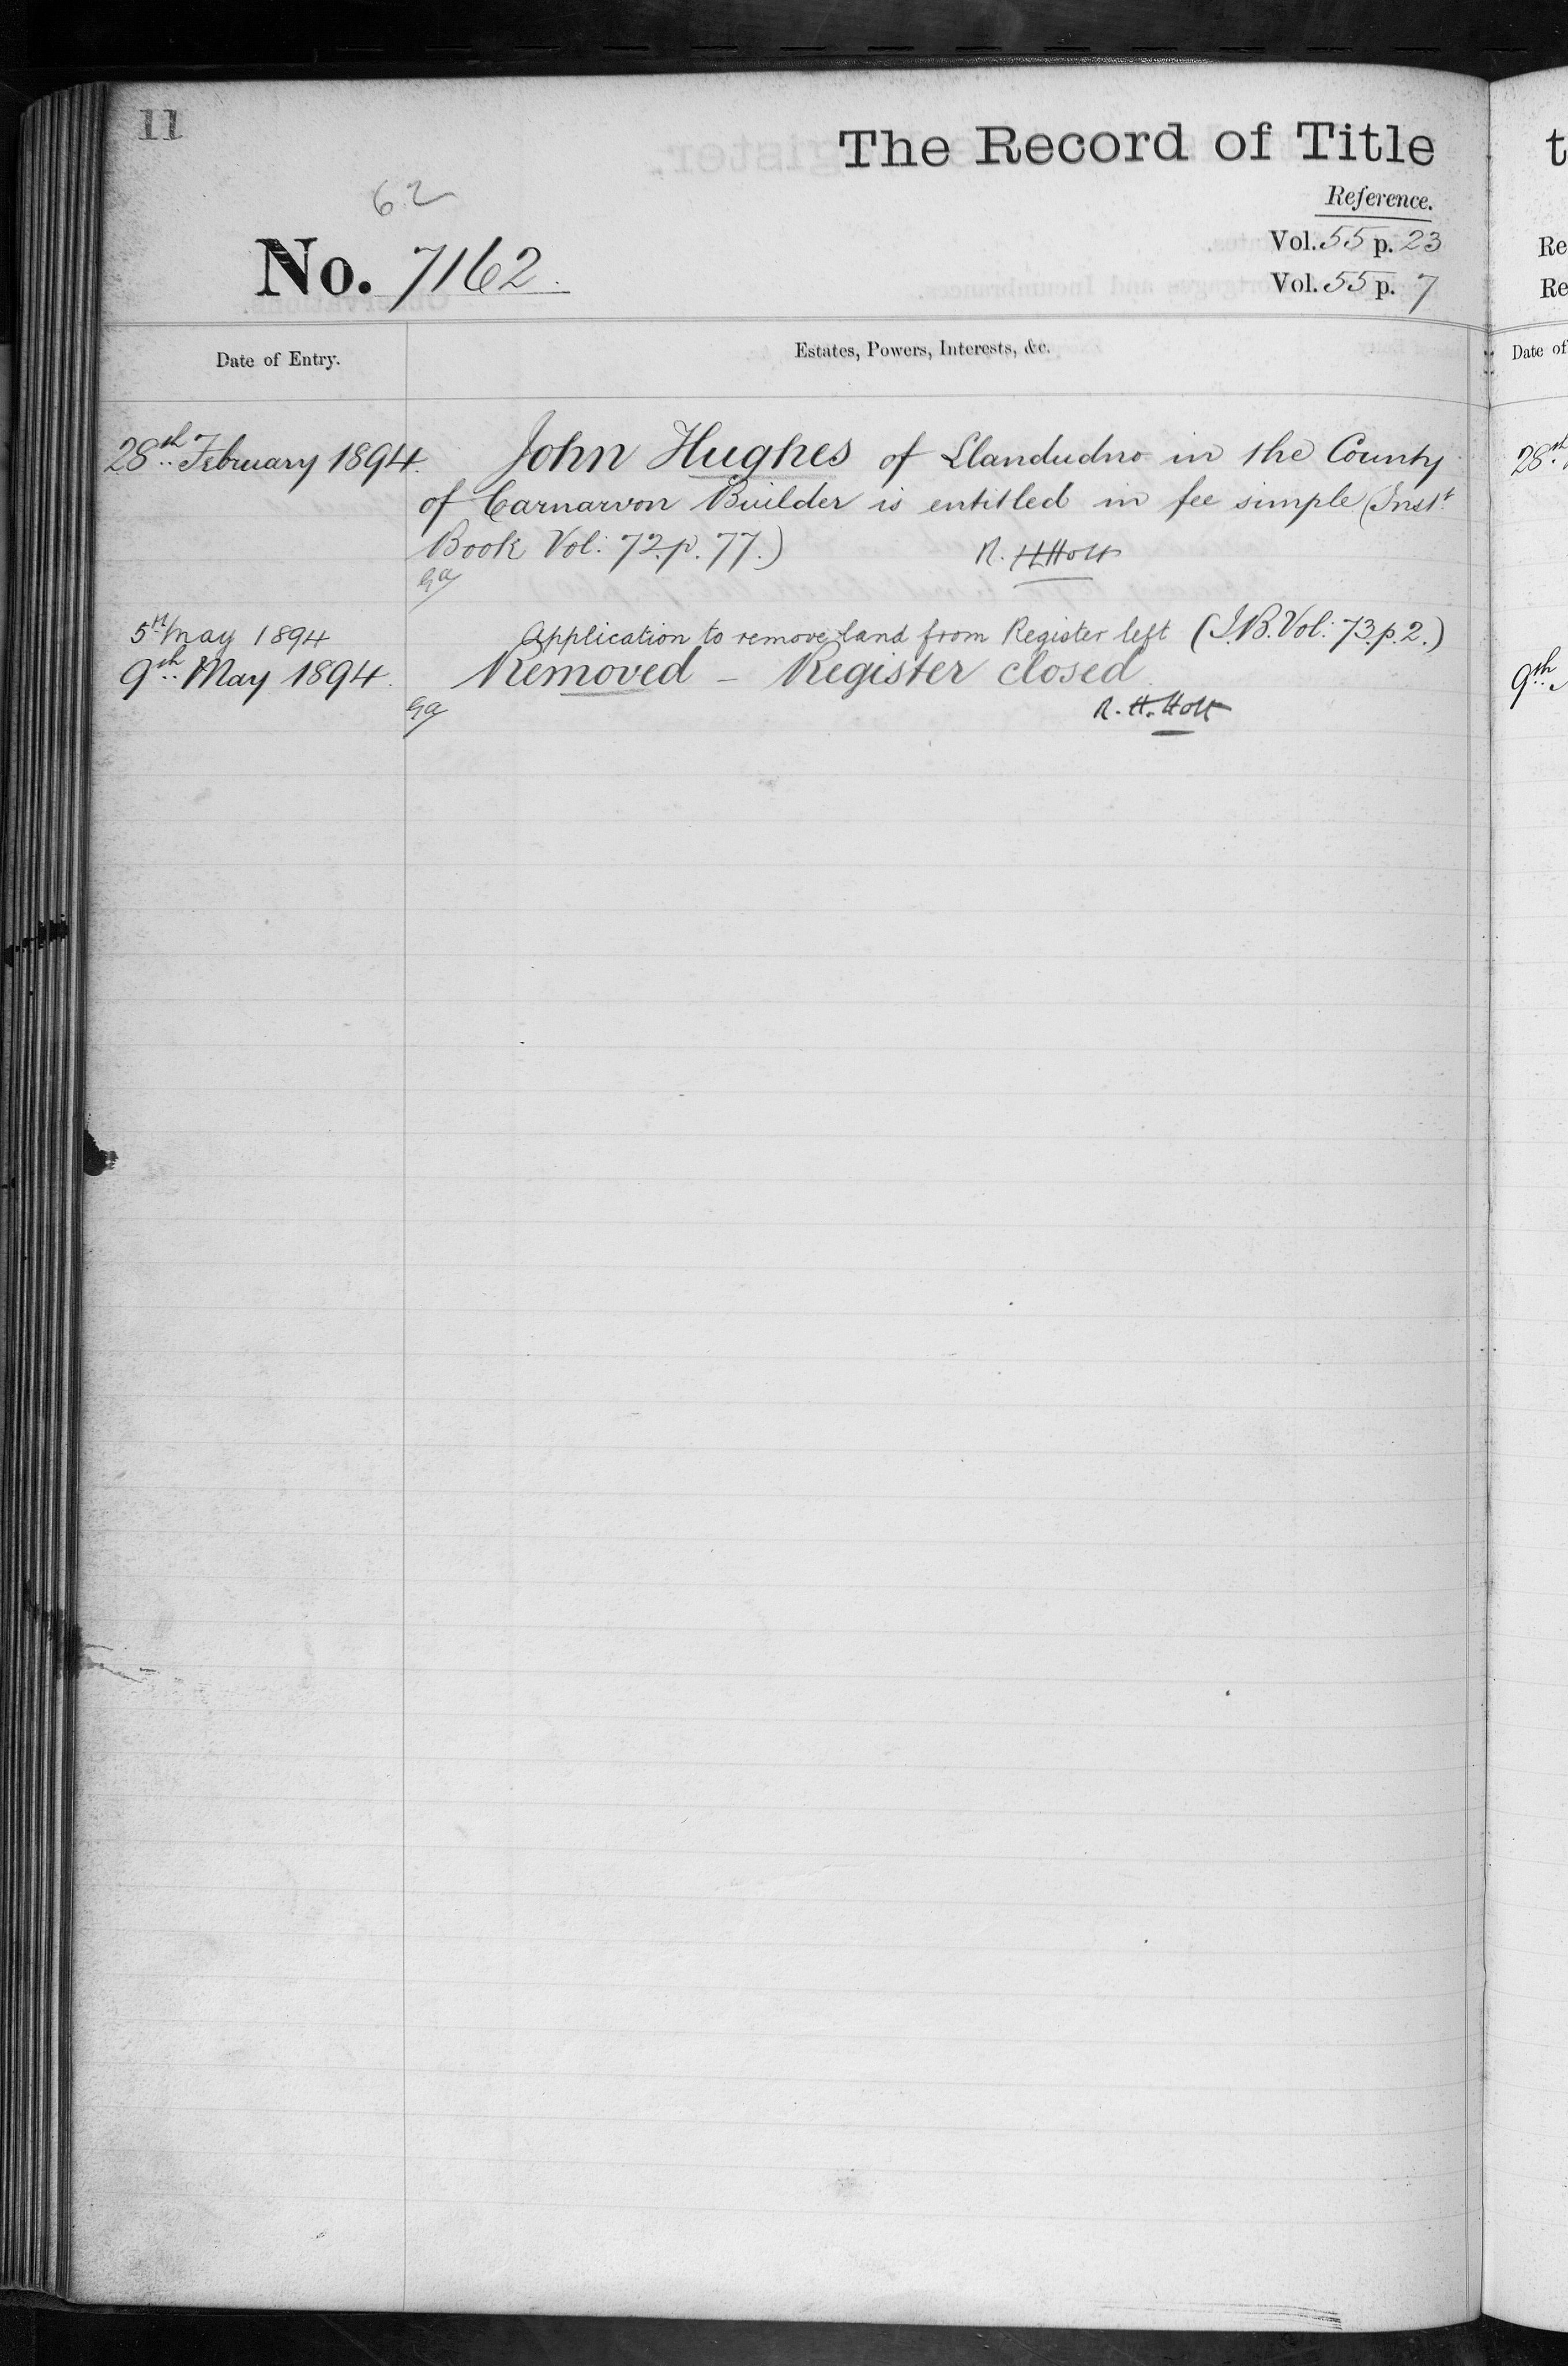 11
The Record of Title
62
Reference.
No. 7162.
Vol. 55 p. 23
Vol. 55 p. 7
Date of Entry.
Estates, Powers, Interests, &c.
28th February 1894.
John Hughes of Llandudno in the County
of Carnarvon Builder is entitled in fee simple (Inst.
Book Vol: 72. p. 77.)
R. H. Holt
5th May 1894
Application to remove land from Register left (I.B. Vol: 73. p. 2.)
9th May 1894.
Removed - Register closed
R. H. Holt
t
Re
Re
Date of
28th
9th